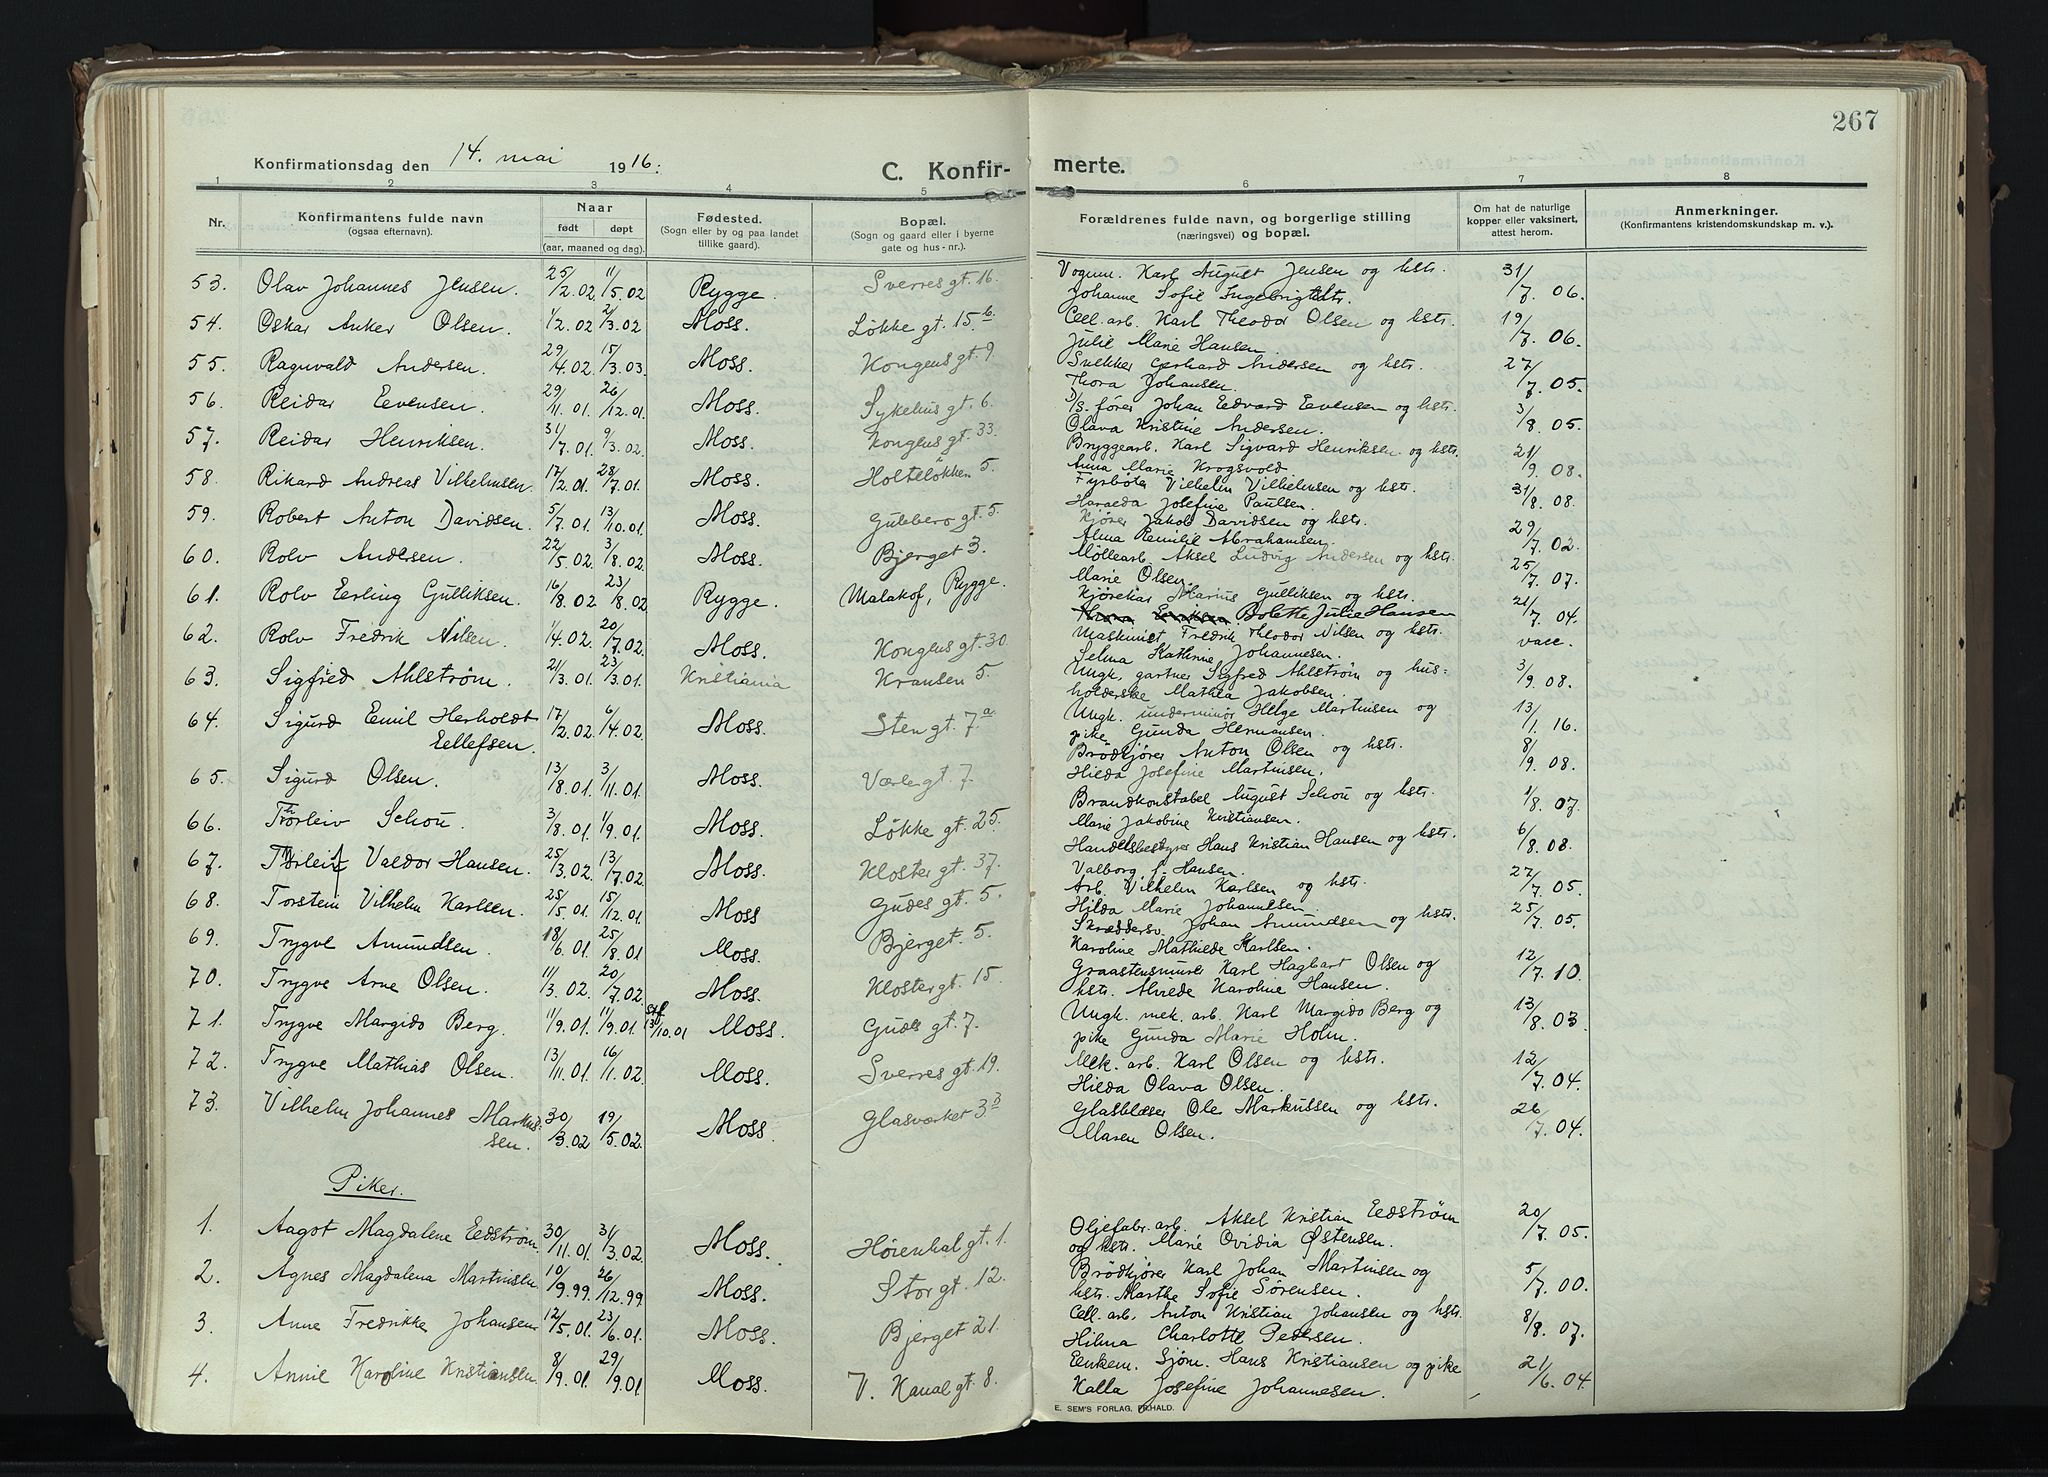 267
Konfirmationsdag den 14. mai 1916.
C. Konfir- merte.
1 2 3 4 5 6 7 8
Nr. Konfirmantens fulde navn (ogsaa efternavn). Naar født døpt (aar, maaned og dag). Fødested. (Sogn eller by og paa landet tillike gaard). Bopæl. (Sogn og gaard eller i byerne gate og hus-nr.). Forældrenes fulde navn, og borgerlige stilling (næringsvei) og bopæl. Om hat de naturlige kopper eller vaksinert, attest herom. Anmerkninger. (Konfirmantens kristendomskundskap m. v.).
53. Olav Johannes Jensen. 25/2.02. 11/5.02 Rygge. Sverres gt. 16. Vognm. Karl August Jensen og hstr. 31/7.06.
Johanne Sofie Ingebrigtdtr.
54. Oskar Anker Olsen. 1/2.02 2/3.02 Moss. Løkke gt. 15 b. Cell. arb. Karl Theodor Olsen og hstr. 19/7.06.
Julie Marie Hansen.
55. Ragnvald Andersen. 29/4.02. 15/3.03. Moss. Kongens gt. 9. Snekker Gerhard Andersen og hstr. 27/7.05.
Thora Johansen.
56. Reidar Evensen. 29/11.01. 26/12.01. Moss. Sykehus gt. 6. D/S. fører Johan Edvard Evensen og hstr. 3/8.05.
Olava Kristine Andersen.
57. Reidar Henriksen. 31/7.01. 9/3.02. Moss. Kongens gt. 33. Bryggearb. Karl Sigvard Henriksen og hstr. 21/9.08.
Anna Marie Krogsvold.
58. Rikard Andreas Vilhelmsen. 17/2.01. 28/7.01. Moss. Holteløkken 5. Fyrbøter Vilhelm Vilhelmsen og hstr. 31/8.08.
Haralda Josefine Paulsen.
59. Robert Anton Davidsen. 5/7.01. 13/10.01. Moss. Gudes gt. 5. Kjører Jakob Davidsen og hstr. 29/7.02.
Alma Emilie Abrahamsen.
60. Rolv Andersen. 22/5.02. 3/8.02. Moss. Bjerget 3. Møllearb. Aksel Ludvig Andersen og hstr. 25/7.07.
Marie Olsen.
61. Rolv Erling Gulliksen. 16/8.02. 23/8.02. Rygge. Malakof, Rygge. Kjørekar Marius Gulliksen og hstr. 21/7.04.
Bolette Julie Hansen
62. Rolv Fredrik Nilsen. 1/4.02. 20/7.02. Moss. Kongens gt. 30 Maskinist Fredrik Theodor Nilsen og hstr. vacc.
Selma Kathrine Johannesen.
63. Sigfred Ahlstrøm. 21/3.01. 23/3.01. Kristiania Kransen 5. Ungk. gartner Sigfred Ahlstrøm og hus= 3/9.08.
holderske Mathea Jakobsen.
64. Sigurd Emil Herholdt 17/2.02. 6/4.02. Moss. Sten gt. 7 a. Ungk. underminør Helge Martinsen og 13/1.16.
Ellefsen. pike Gunda Hermansen.
65. Sigurd Olsen. 13/8.01. 3/11.01. Moss. Værlegt. 7. Brødkjører Anton Olsen og hstr. 8/9.08.
Hilda Josefine Martinsen.
66. Thorleiv Schou. 3/8.01. 1/9.01. Moss. Løkke gt. 25. Brandkonstabel August Schou og hstr. 1/8.07.
Marie Jakobine Kristiansen.
67. Thorleif Valdor Hansen. 25/3.02. 13/7.02. Moss. Kloster gt. 37. Handelsbestyrer Hans Kristian Hansen og hstr. 6/8.08.
Valborg f. Hansen.
68. Torstein Vilhelm Karlsen. 25/5.01. 15/12.01. Moss Gudes gt. 5. Arb. Vilhelm Karlsen og hstr. 27/7.05.
Hilda Marie Johannesen.
69. Trygve Amundsen. 18/6.01. 25/8.01 Moss. Bjerget. 5. Skræddersv. Johan Amundsen og hstr. 25/7.05.
Karoline Mathilde Karlsen.
70. Trygve Arne Olsen. 11/3.02. 20/7.02. Moss. Kloster gt. 15. Graastensmurer Karl Hagbart Olsen og 12/7.10.
hstr. Alvilde Karoline Hansen.
71. Trygve Margido Berg. 11/9.01. 11/9.01. stf. 13/10.01 Moss. Gudes gt. 7. Ungk. mek. arb. Karl Margido Berg og 13/8.03
pike Gunda Marie Holm.
72. Trygve Mathias Olsen. 13/11.01. 16/1.02. Moss. Sverres gt. 19. Mek. arb. Karl Olsen og hstr. 12/7.04.
Hilda Olava Olsen.
73. Vilhelm Johannes Markus= 30/3.02. 19/5.02. Moss. Glasværket 3 Glasblæser Ole Markussen og hstr. 26/7.04.
sen. Maren Olsen.
Piker.
1. Aagot Magdalene Edstrøm. 30/11.01. 31/3.02. Moss. Høienhal gt. 1. Oljefabr. arb. Aksel Kristian Edstrøm 20/7.05.
og hstr. Marie Ovidia Østensen.
2. Agnes Magdalena Martinsen 10/9.99. 26/12.99. Moss. Stor gt. 12. Brødkjører Karl Johan Martinsen og 5/7.00.
hstr. Marthe Sofie Sørensen.
3. Anne Fredrikke Johansen 12/5.01. 23/6.01. Moss. Bjerget 21. Cell. arb. Anton Kristian Johansen og hstr. 8/8.07.
Hilma Charlotte Pedersen.
4. Annie Karoline Kristiansen. 8/9.01. 29/9.01. Moss. V. Kanal gt. 8. Enkem. Sjøm. Hans Kristiansen og pike 21/6.04.
Kalla Josefine Johannesen.
E. SEM'S FORLAG, FR.HALD.